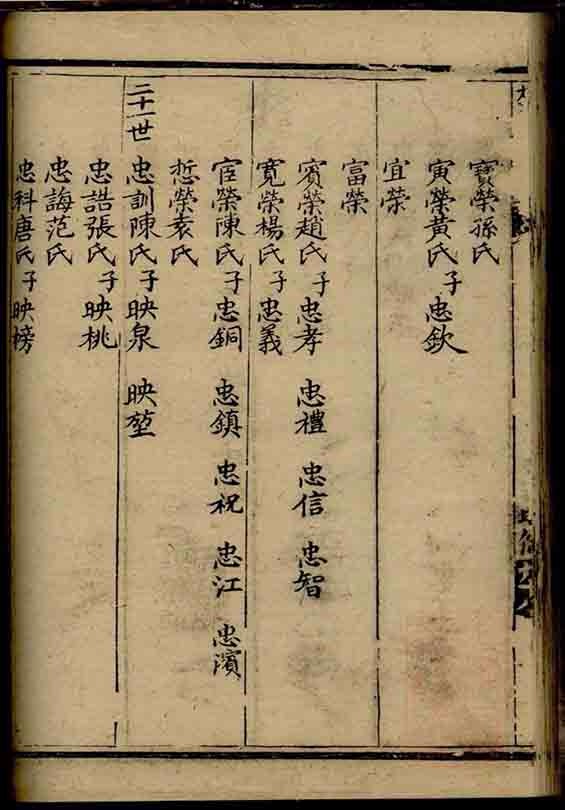 寳榮孫氏
寅榮黃氏子忠欽
宜榮
富榮
賓榮趙氏子忠孝 忠禮 忠信 忠智
寬榮楊氏子忠義
宦榮陳氏子忠銅 忠鎮 忠祝 忠江 忠濱
悊榮袁氏
二十一世 忠訓陳氏子映泉 映堃
忠誥張氏子映桃
忠誨范氏
忠科唐氏子映榜